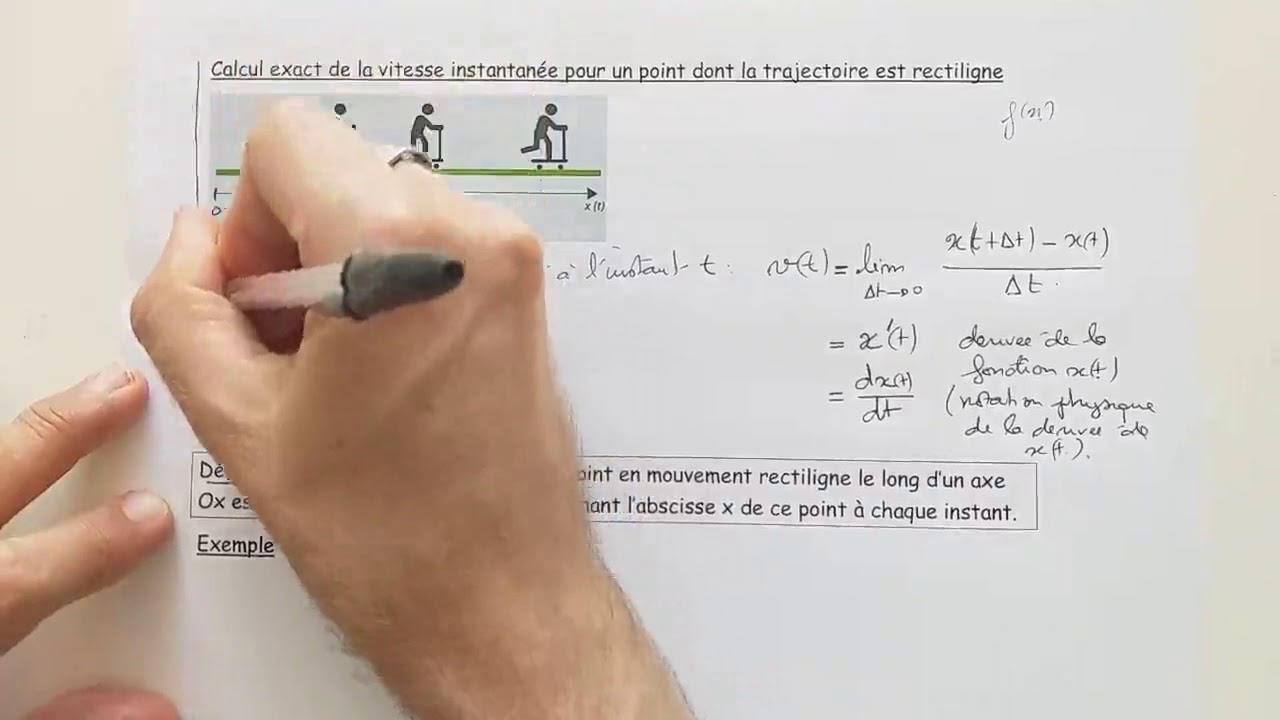 Calcul exact de la vitesse instantanée pour un point dont la trajectoire est rectiligne
f(x)
0
x(t)
à l'instant t : v(t) = lim Δt→0 x(t+Δt) - x(t) / Δt
= x'(t) derivee de la fonction x(t)
= dx(t)/dt (notation physique de la derivee de x(t).
point en mouvement rectiligne le long d'un axe
Ox es ant l'abscisse x de ce point à chaque instant.
Exemple